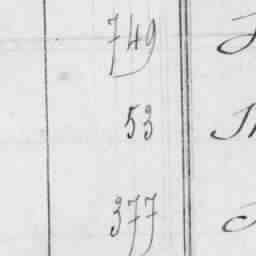 749
53
377